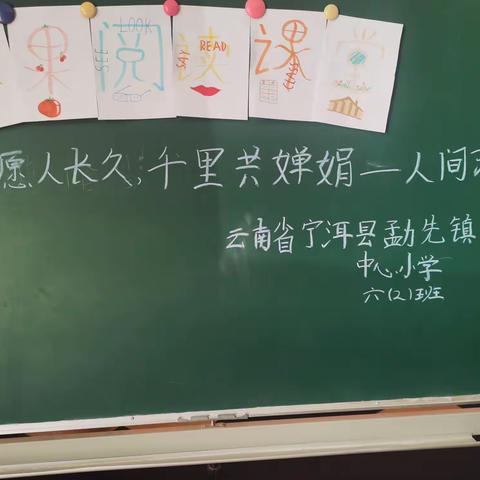 果 阅 读 课
LOOK
SEE
READ
SAY
CLASS
愿人长久,千里共婵娟—人间
云南省宁洱县勐先镇
中心小学
六(2)班